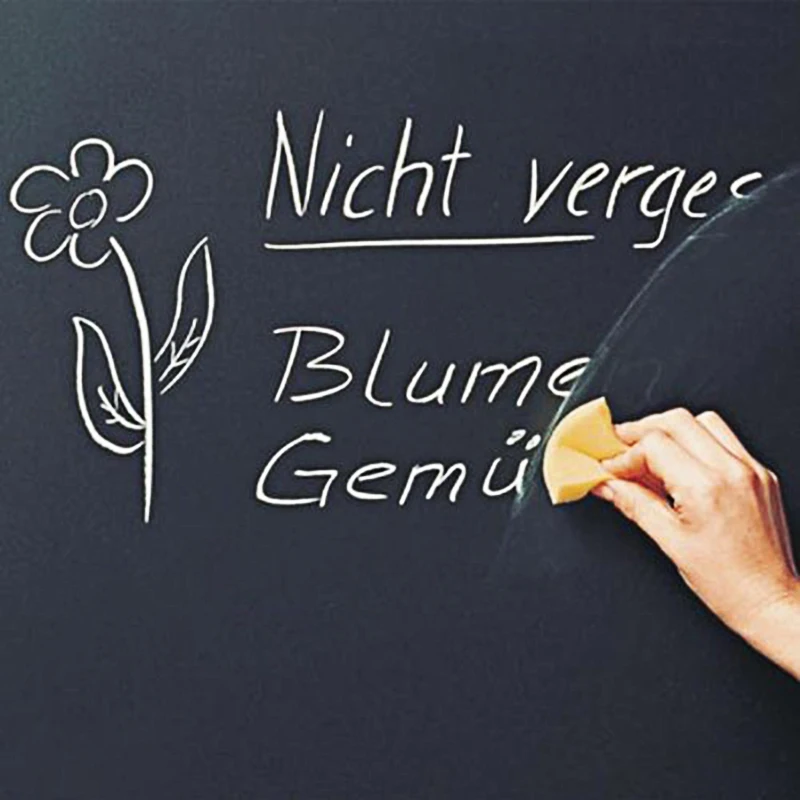 Nicht verges
Blume
Gemü